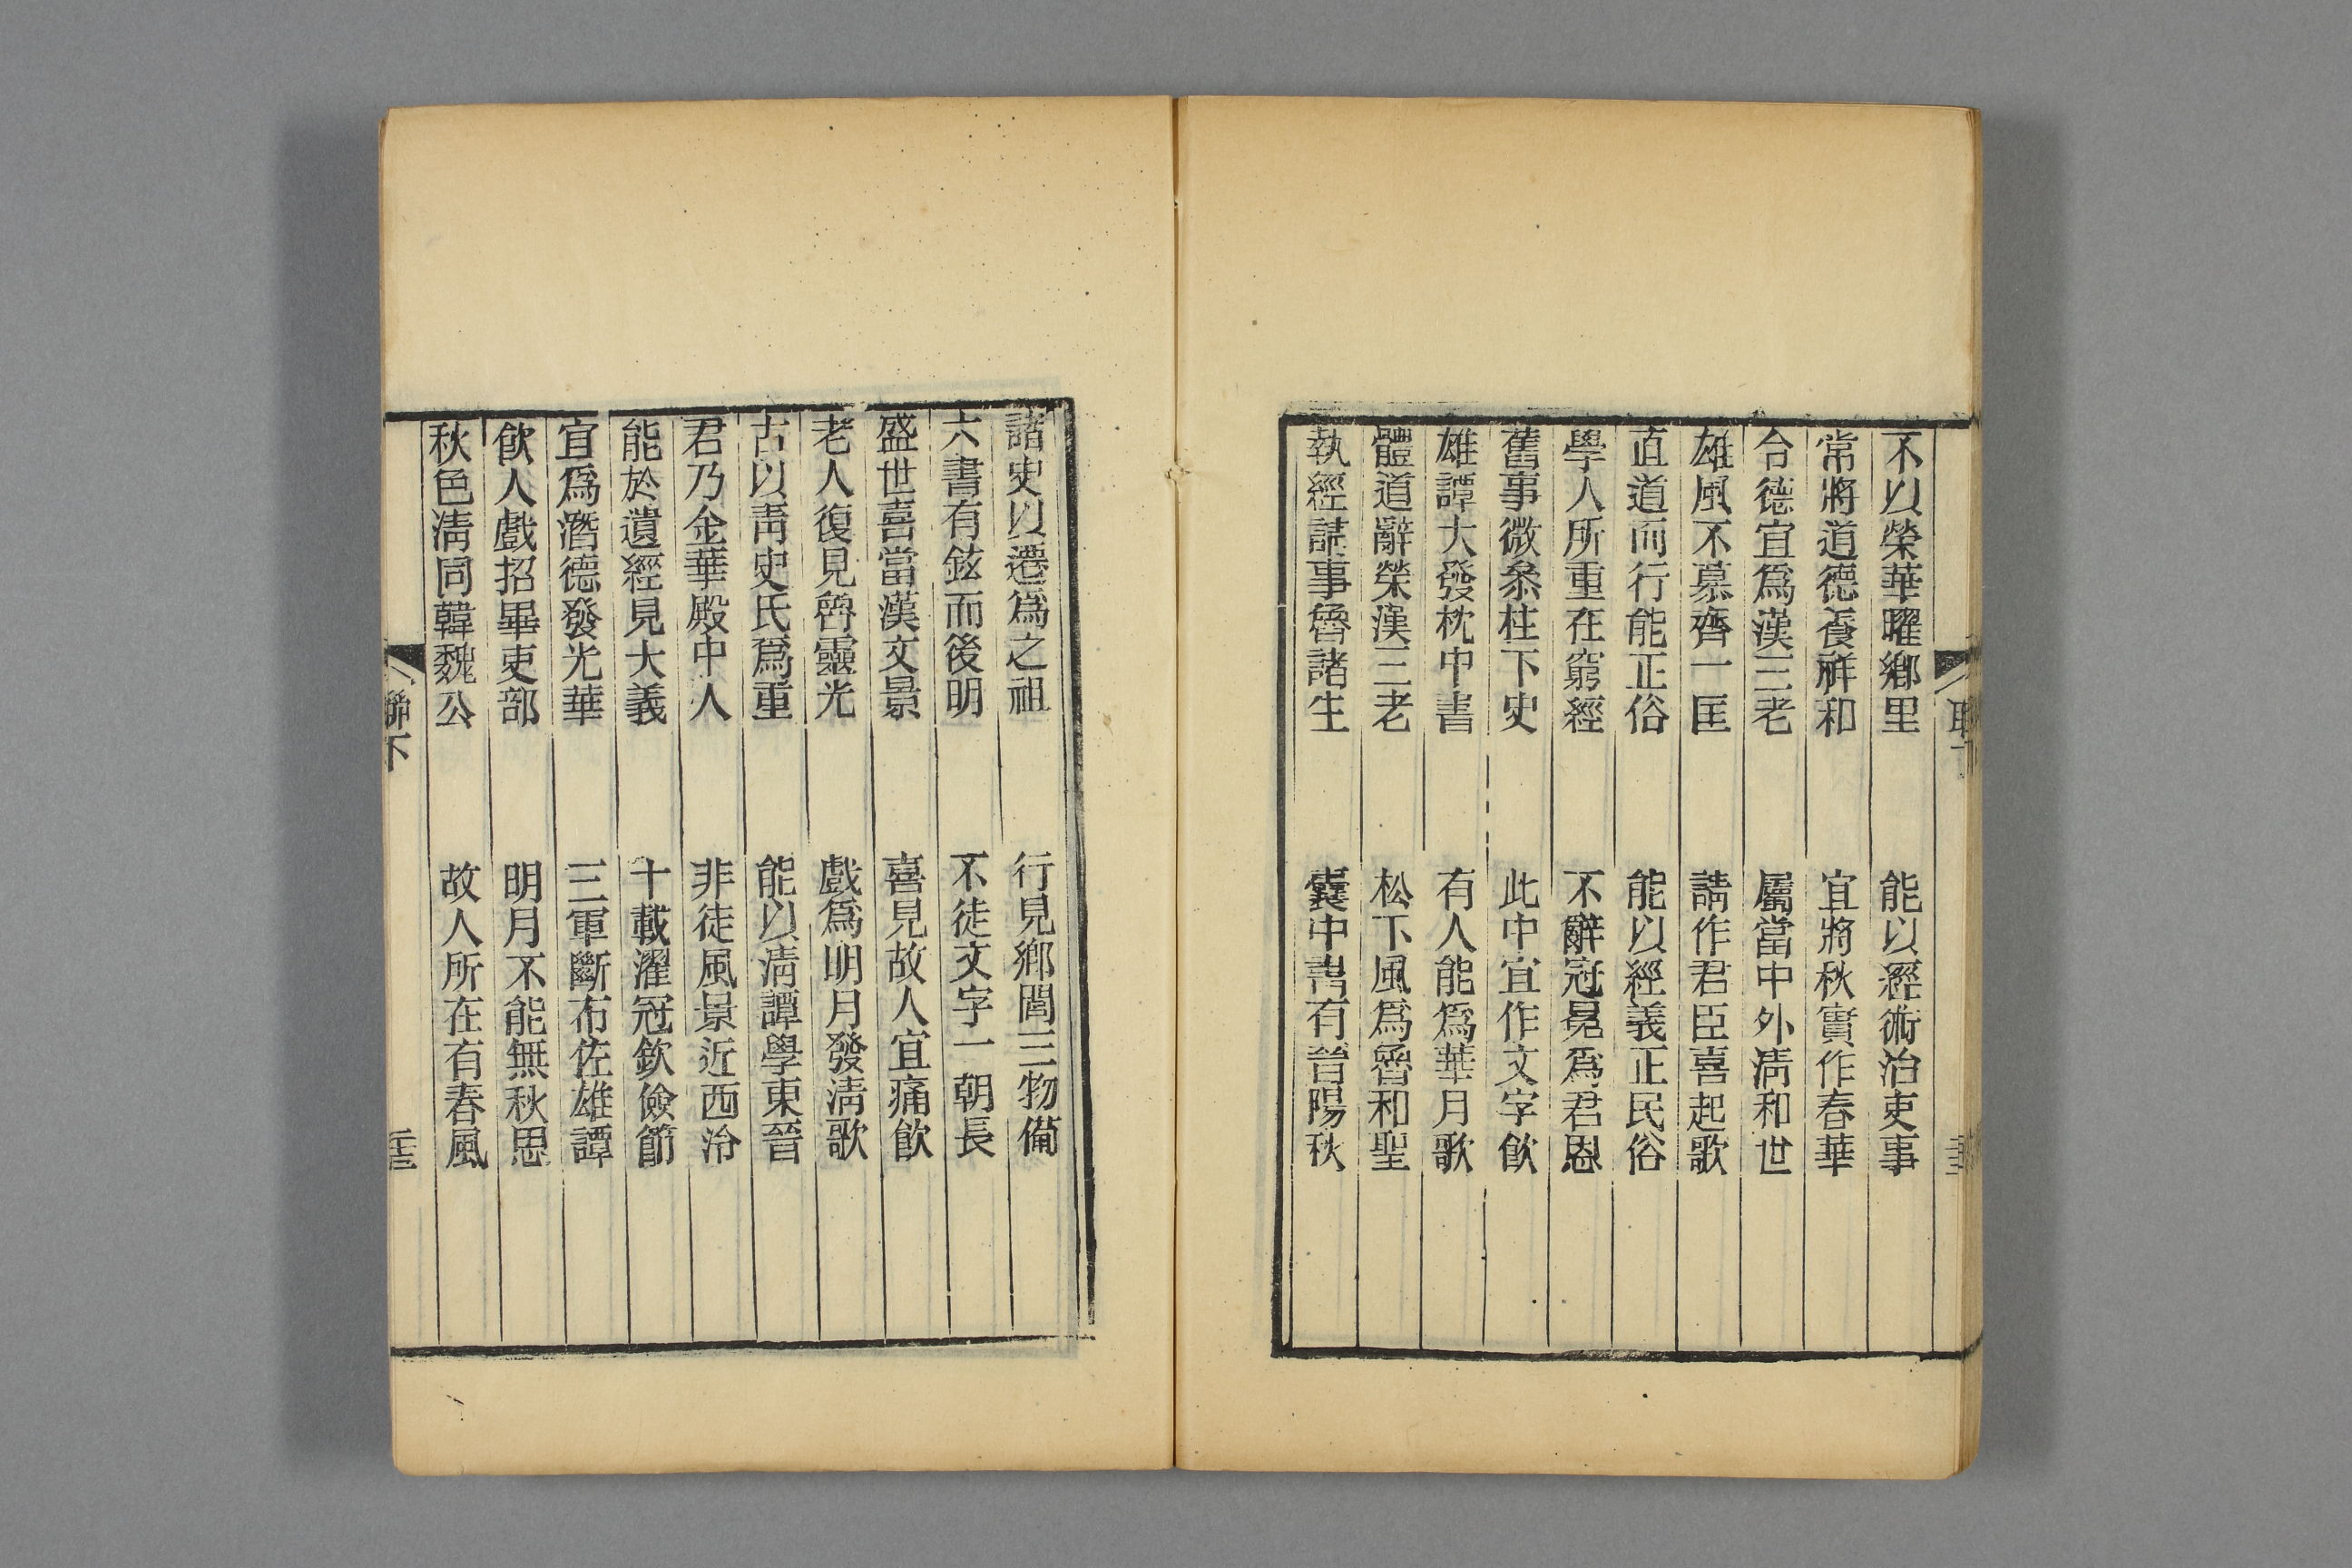 不以榮華曜鄉里　能以經術治吏事
常將道德養祥和　宜將秋實作春華
合德宜爲漢三老　屬當中外淸和世
雄風不慕齊一匡　請作君臣喜起歌
直道而行能正俗　能以經義正民俗
學人所重在窮經　不辭冠冕爲君恩
舊事微叅柱下史　此中宜作文字飮
雄譚大發枕中書　有人能爲華月歌
體道辭榮漢三老　松下風爲魯和聖
執經謀事魯諸生　囊中書有晉陽秋
諸史以遷爲之祖　行見鄉閭三物備
六書有鉉而後明　不徒文字一朝長
盛世喜當漢文景　喜見故人宜痛飮
老人復見魯靈光　戲爲明月發淸歌
古以靑史氏爲重　能以淸譚學東晉
君乃金華殿中人　非徒風景近西泠
能於遺經見大義　十載濯冠欽儉節
宜爲潛德發光華　三軍斷布佐雄譚
飮人戲招畢吏部　明月不能無秋思
秋色淸同韓魏公　故人所在有春風
聯下